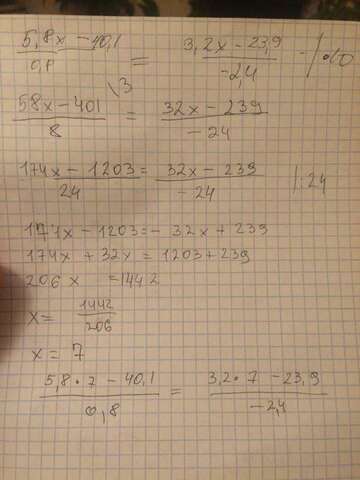 5,8x - 40,1 / 0,8 = 3,2x - 23,9 / -2,4 -/·10
58x - 401 / 8 \3 = 32x - 239 / -24
174x - 1203 / 24 = 32x - 239 / -24 /:24
174x - 1203 = - 32x + 239
174x + 32x = 1203 + 239
206x = 1442
x = 1442 / 206
x = 7
5,8 · 7 - 40,1 / 0,8 = 3,2 · 7 - 23,9 / -2,4